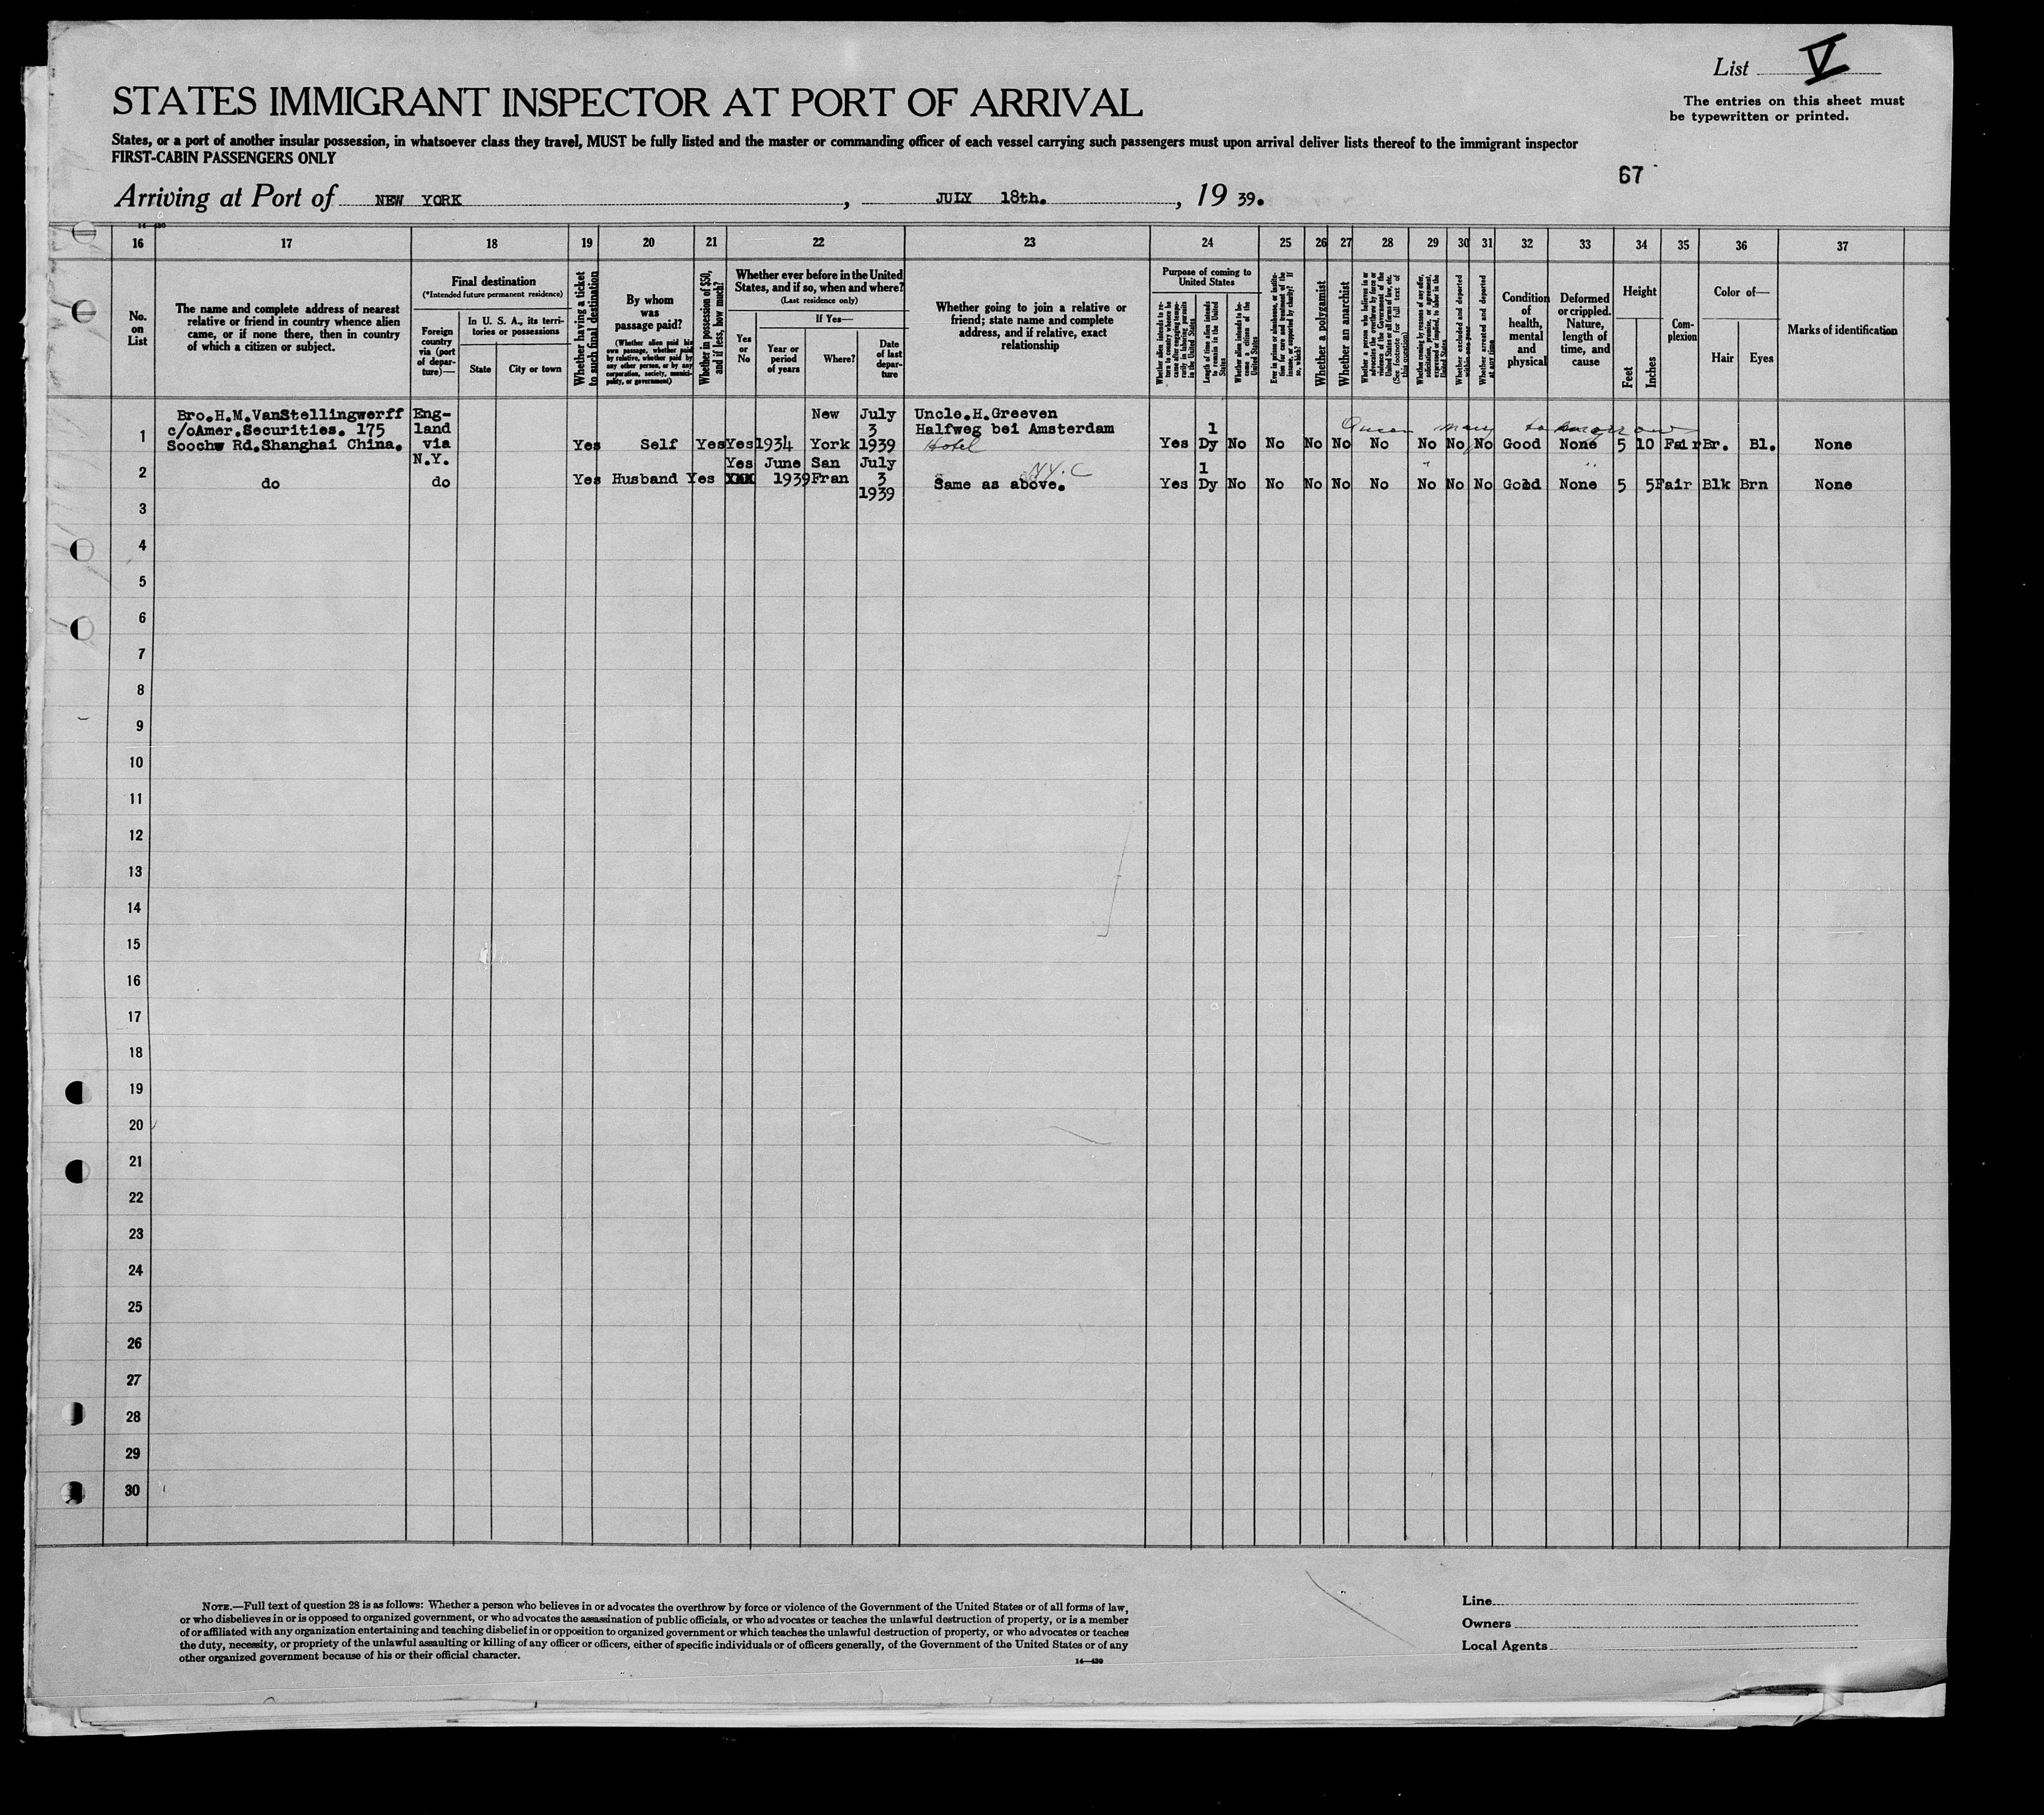 List V
STATES IMMIGRANT INSPECTOR AT PORT OF ARRIVAL
The entries on this sheet must
be typewritten or printed.
States, or a port of another insular possession, in whatsoever class they travel, MUST be fully listed and the master or commanding officer of each vessel carrying such passengers must upon arrival deliver lists thereof to the immigrant inspector
FIRST-CABIN PASSENGERS ONLY
67
Arriving at Port of NEW YORK, JULY 18th., 19 39.
16 17 18 19 20 21 22 23 24 25 26 27 28 29 30 31 32 33 34 35 36 37
No.
on
List
The name and complete address of nearest
relative or friend in country whence alien
came, or if none there, then in country
of which a citizen or subject.
Final destination
(*Intended future permanent residence)
Foreign
country
via (port
of depar-
ture)—
In U. S. A., its terri-
tories or possessions
State
City or town
Whether having a ticket
to such final destination
By whom
was
passage paid?
(Whether alien paid his
own passage, whether paid
by relative, whether paid by
any other person, or by any
corporation, society, munici-
pality, or government)
Whether in possession of $50,
and if less, how much?
Whether ever before in the United
States, and if so, when and where?
(Last residence only)
Yes
or
No
If Yes—
Year or
period
of years
Where?
Date
of last
depar-
ture
Whether going to join a relative or
friend; state name and complete
address, and if relative, exact
relationship
Purpose of coming to
United States
Length of time alien intends
to remain in the United
States
Whether alien intends to be-
come a citizen of the
United States
Whether a polygamist
Whether an anarchist
Whether arrested and deported
at any time
Condition
of
health,
mental
and
physical
Deformed
or crippled.
Nature,
length of
time, and
cause
Height
Feet
Inches
Com-
plexion
Color of—
Hair
Eyes
Marks of identification
Bro.H.M.VanStellingwerff Eng- New July Uncle.H.Greeven
c/oAmer.Securities. 175 land 3 Halfweg bei Amsterdam 1 Queen Mary tomorrow
1 Soochw Rd.Shanghai China. via Yes Self Yes Yes 1934 York 1939 Hotel Yes Dy No No No No No No No No Good None 5 10 Fair Br. Bl. None
N.Y. Yes June San July N.Y.C 1
2 do do Yes Husband Yes XXX 1939 Fran 3 Same as above. Yes Dy No No No No No No No No Good None 5 5 Fair Blk Brn None
1939
3
4
5
6
7
8
9
10
11
12
13
14
15
16
17
18
19
20
21
22
23
24
25
26
27
28
29
30
NOTE.—Full text of question 28 is as follows: Whether a person who believes in or advocates the overthrow by force or violence of the Government of the United States or of all forms of law,
or who disbelieves in or is opposed to organized government, or who advocates the assassination of public officials, or who advocates or teaches the unlawful destruction of property, or is a member
of or affiliated with any organization entertaining and teaching disbelief in or opposition to organized government or which teaches the unlawful destruction of property, or who advocates or teaches
the duty, necessity, or propriety of the unlawful assaulting or killing of any officer or officers, either of specific individuals or of officers generally, of the Government of the United States or of any
other organized government because of his or their official character.
14—430
Line
Owners
Local Agents